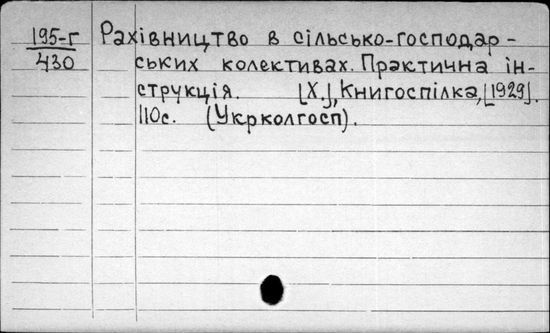 195-г Рахівництво в сільсько-господар-
430 ських колективах. Практична ін-
струкція. [Х.], Книгоспілка, [1929].
110с. (Укрколгосп).